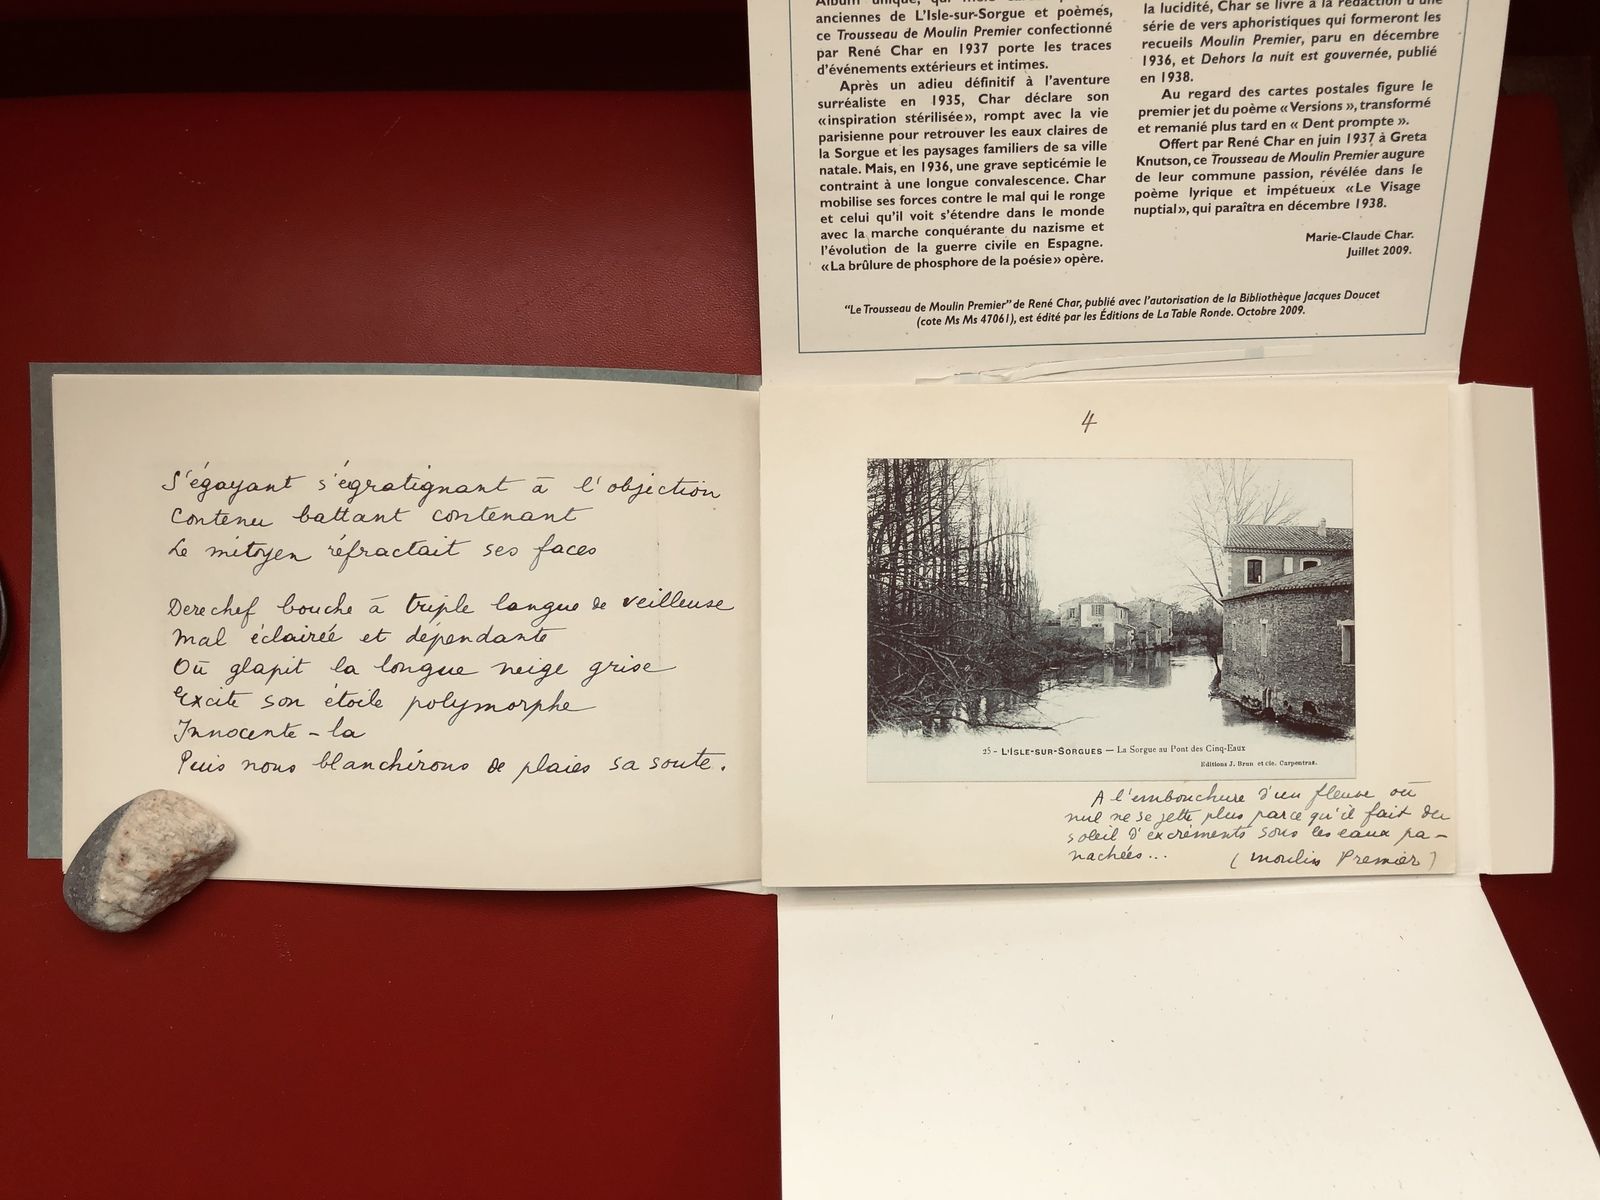 Album unique, qui
anciennes de L'Isle-sur-Sorgue et poèmes,
ce Trousseau de Moulin Premier confectionné
par René Char en 1937 porte les traces
d'événements extérieurs et intimes.
Après un adieu définitif à l'aventure
surréaliste en 1935, Char déclare son
«inspiration stérilisée», rompt avec la vie
parisienne pour retrouver les eaux claires de
la Sorgue et les paysages familiers de sa ville
natale. Mais, en 1936, une grave septicémie le
contraint à une longue convalescence. Char
mobilise ses forces contre le mal qui le ronge
et celui qu'il voit s'étendre dans le monde
avec la marche conquérante du nazisme et
l'évolution de la guerre civile en Espagne.
«La brûlure de phosphore de la poésie» opère.
la lucidité, Char se livre à la rédaction d'une
série de vers aphoristiques qui formeront les
recueils Moulin Premier, paru en décembre
1936, et Dehors la nuit est gouvernée, publié
en 1938.
Au regard des cartes postales figure le
premier jet du poème «Versions», transformé
et remanié plus tard en « Dent prompte ».
Offert par René Char en juin 1937 à Greta
Knutson, ce Trousseau de Moulin Premier augure
de leur commune passion, révélée dans le
poème lyrique et impétueux «Le Visage
nuptial», qui paraîtra en décembre 1938.
Marie-Claude Char.
Juillet 2009.
"Le Trousseau de Moulin Premier" de René Char, publié avec l'autorisation de la Bibliothèque Jacques Doucet
(cote Ms Ms 47061), est édité par les Éditions de La Table Ronde. Octobre 2009.
S'égayant s'égratignant à l'objection
Contenu battant contenant
Le mitoyen réfractait ses faces
Derechef bouche à triple langue de veilleuse
Mal éclairée et dépendante
Où glapit la longue neige grise
Excite son étoile polymorphe
Innocente-la
Puis nous blanchirons de plaies sa soute.
4
25 - L'ISLE-SUR-SORGUES — La Sorgue au Pont des Cinq-Eaux
Editions J. Brun et cie. Carpentras.
A l'embouchure d'un fleuve où
nul ne se jette plus parce qu'il fait du
soleil d'excréments sous les eaux pa-
nachées...
(Moulin Premier)